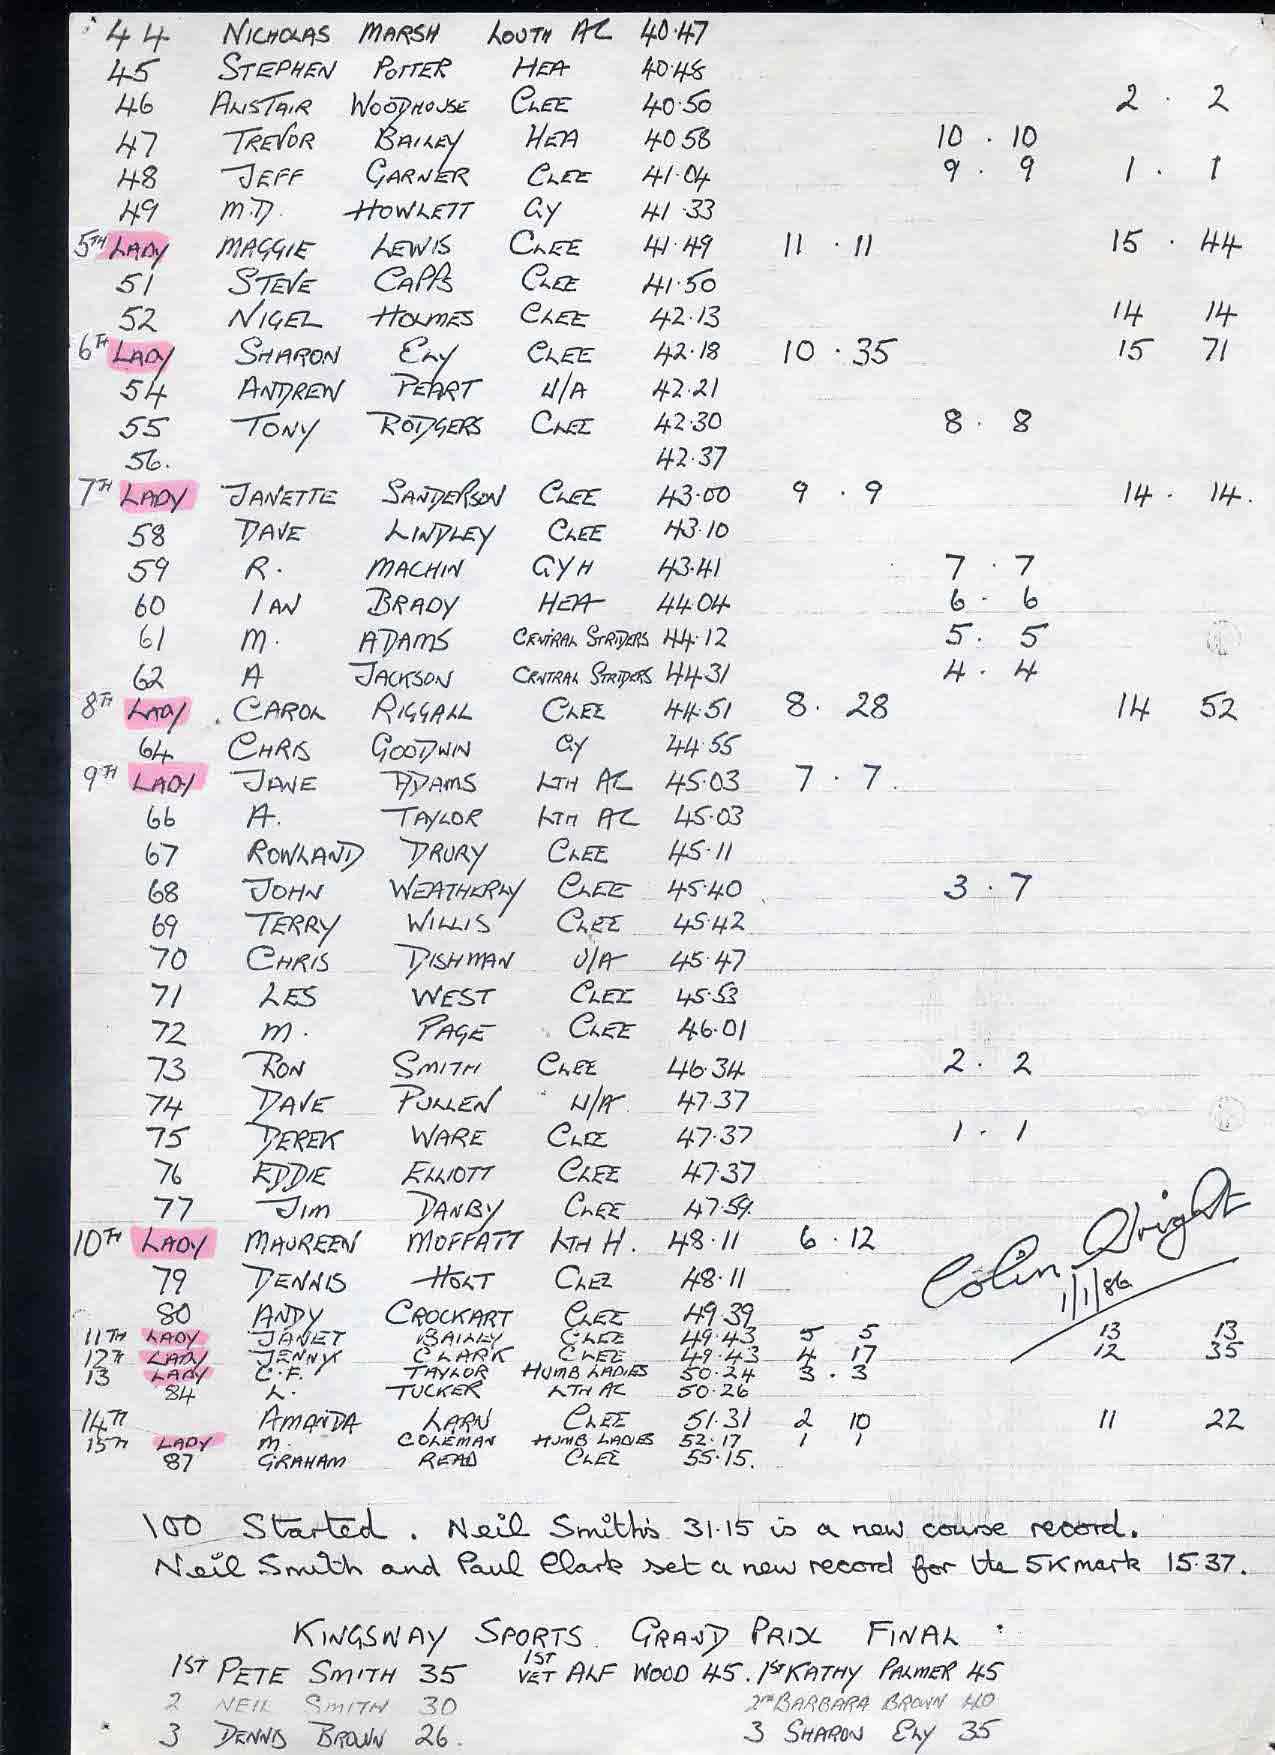 44 NICHOLAS MARSH LOUTH AC 40.47
45 STEPHEN POTTER HEA 40.48
46 ALISTAIR WOODHOUSE CLEE 40.50 2 . 2
47 TREVOR BAILEY HEA 40 58 10 . 10
48 JEFF GARNER CLEE 41.04 9 . 9 1 . 1
49 M.D. HOWLETT GY 41.33
5TH LADY MAGGIE LEWIS CLEE 41.49 11 . 11 15 . 44
51 STEVE CAPPS CLEE 41.50
52 NIGEL HOLMES CLEE 42.13 14 14
6TH LADY SHARON ELY CLEE 42.18 10 . 35 15 71
54 ANDREW PEART U/A 42.21
55 TONY RODGERS CLEE 42.30 8 . 8
56. 42.37
7TH LADY JANETTE SANDERSON CLEE 43.00 9 . 9 14 . 14.
58 DAVE LINDLEY CLEE 43.10
59 R. MACHIN GYH 43.41 7 . 7
60 IAN BRADY HEA 44 04 6 . 6
61 M. ADAMS CENTRAL STRIDERS 44.12 5 . 5
62 A JACKSON CENTRAL STRIDERS 44 31 4 . 4
8TH LADY . CAROL RIGGALL CLEE 44.51 8 . 28 14 52
64 CHRIS GOODWIN GY 44.55
9TH LADY JANE ADAMS LTH AC 45.03 7 . 7.
66 A. TAYLOR LTH AC 45.03
67 ROWLAND DRURY CLEE 45.11
68 JOHN WEATHERLY CLEE 45.40 3 . 7
69 TERRY WILLIS CLEE 45.42
70 CHRIS DISHMAN U/A 45.47
71 LES WEST CLEE 45.53
72 M. PAGE CLEE 46.01
73 RON SMITH CLEE 46.34 2 . 2
74 DAVE PULLEN U/A 47.37
75 DEREK WARE CLEE 47.37 1 . 1
76 EDDIE ELLIOTT CLEE 47.37
77 JIM DANBY CLEE 47.59.
10TH LADY MAUREEN MOFFATT LTH H. 48.11 6 . 12
79 DENNIS HOLT CLEE 48.11
Colin Wright
1/1/86
80 ANDY CROCKART CLEE 49.39
11TH LADY JANET BAILEY CLEE 49.43 5 5 13 13
12TH LADY JENNY CLARK CLEE 49.43 4 17 12 35
13 LADY C.F. TAYLOR HUMB LADIES 50.24 3 . 3
84 L. TUCKER LTH AC 50.26
14TH AMANDA LARN CLEE 51.31 2 10 11 22
15TH LADY M. COLEMAN HUMB LADIES 52.17 1 1
87 GRAHAM READ CLEE 55.15.
100 Started. Neil Smith's 31.15 is a new course record.
Neil Smith and Paul Clark set a new record for the 5K mark 15.37.
KINGSWAY SPORTS GRAND PRIX FINAL :
1ST PETE SMITH 35 1ST VET ALF WOOD 45. 1st KATHY PALMER 45
2 NEIL SMITH 30 2nd BARBARA BROWN 40
3 DENNIS BROWN 26. 3 SHARON ELY 35